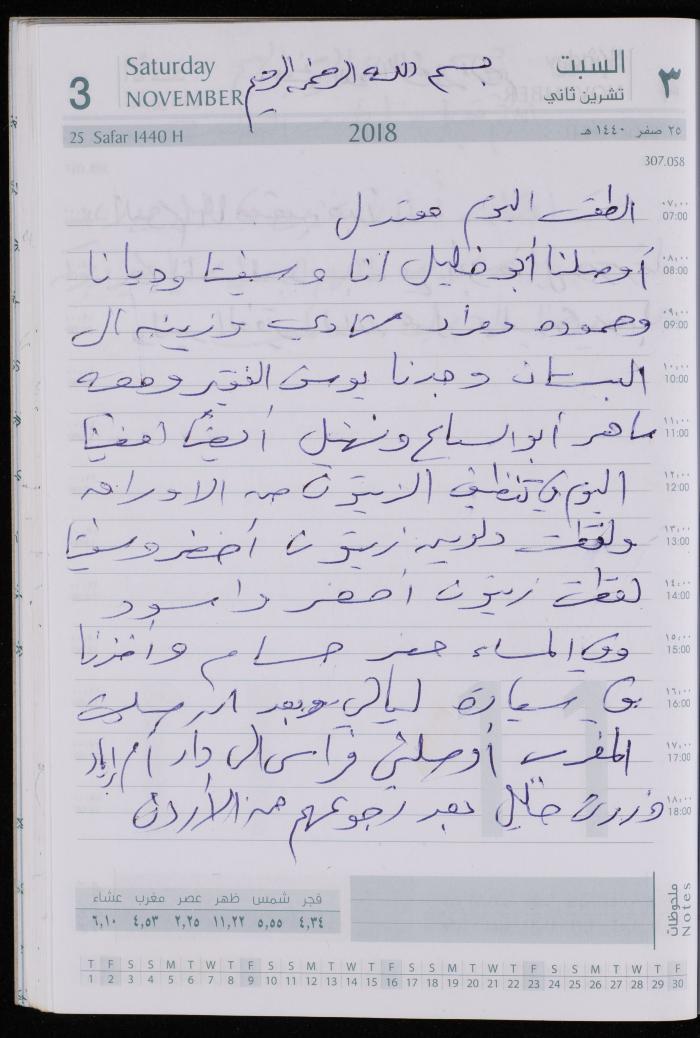 3
Saturday
NOVEMBER
بسم الله الرحمن الرحيم
السبت
تشرين ثاني
٣
25 Safar 1440 H
2018
٢٥ صفر ١٤٤٠ هـ
307.058
٠٧,٠٠
07:00
الطقس اليوم معتدل
٠٨,٠٠
08:00
أوصلنا أبو خليل أنا وسيفتا وديانا
٠٩,٠٠
09:00
وحموده ومراد شادي وزينه ال
١٠,٠٠
10:00
البستان وجدنا يوسف الفقير ومعه
١١,٠٠
11:00
ماهر أبو السباع ونهيل أيضاً امضينا
١٢,٠٠
12:00
اليوم في تنظيف الزيتون من الاوراق
١٣,٠٠
13:00
ولقطت دلوين زيتون أخضر وسيفتا
١٤,٠٠
14:00
لقطت زيتون اخضر واسود
١٥,٠٠
15:00
وفي المساء حضر حسام واخذنا
١٦,٠٠
16:00
في سيارة ليالي وبعد ان صليت
١٧,٠٠
17:00
المغرب أوصلني فراس الى دار أم إياد
١٨,٠٠
18:00
وزرت خليل بعد رجوعهم من الأردن
فجر شمس ظهر عصر مغرب عشاء
٤,٣٤ ٥,٥٥ ١١,٢٢ ٢,٢٥ ٤,٥٣ ٦,١٠
ملحوظات
Notes
T F S S M T W T F S S M T W T F S S M T W T F S S M T W T F
1 2 3 4 5 6 7 8 9 10 11 12 13 14 15 16 17 18 19 20 21 22 23 24 25 26 27 28 29 30
11